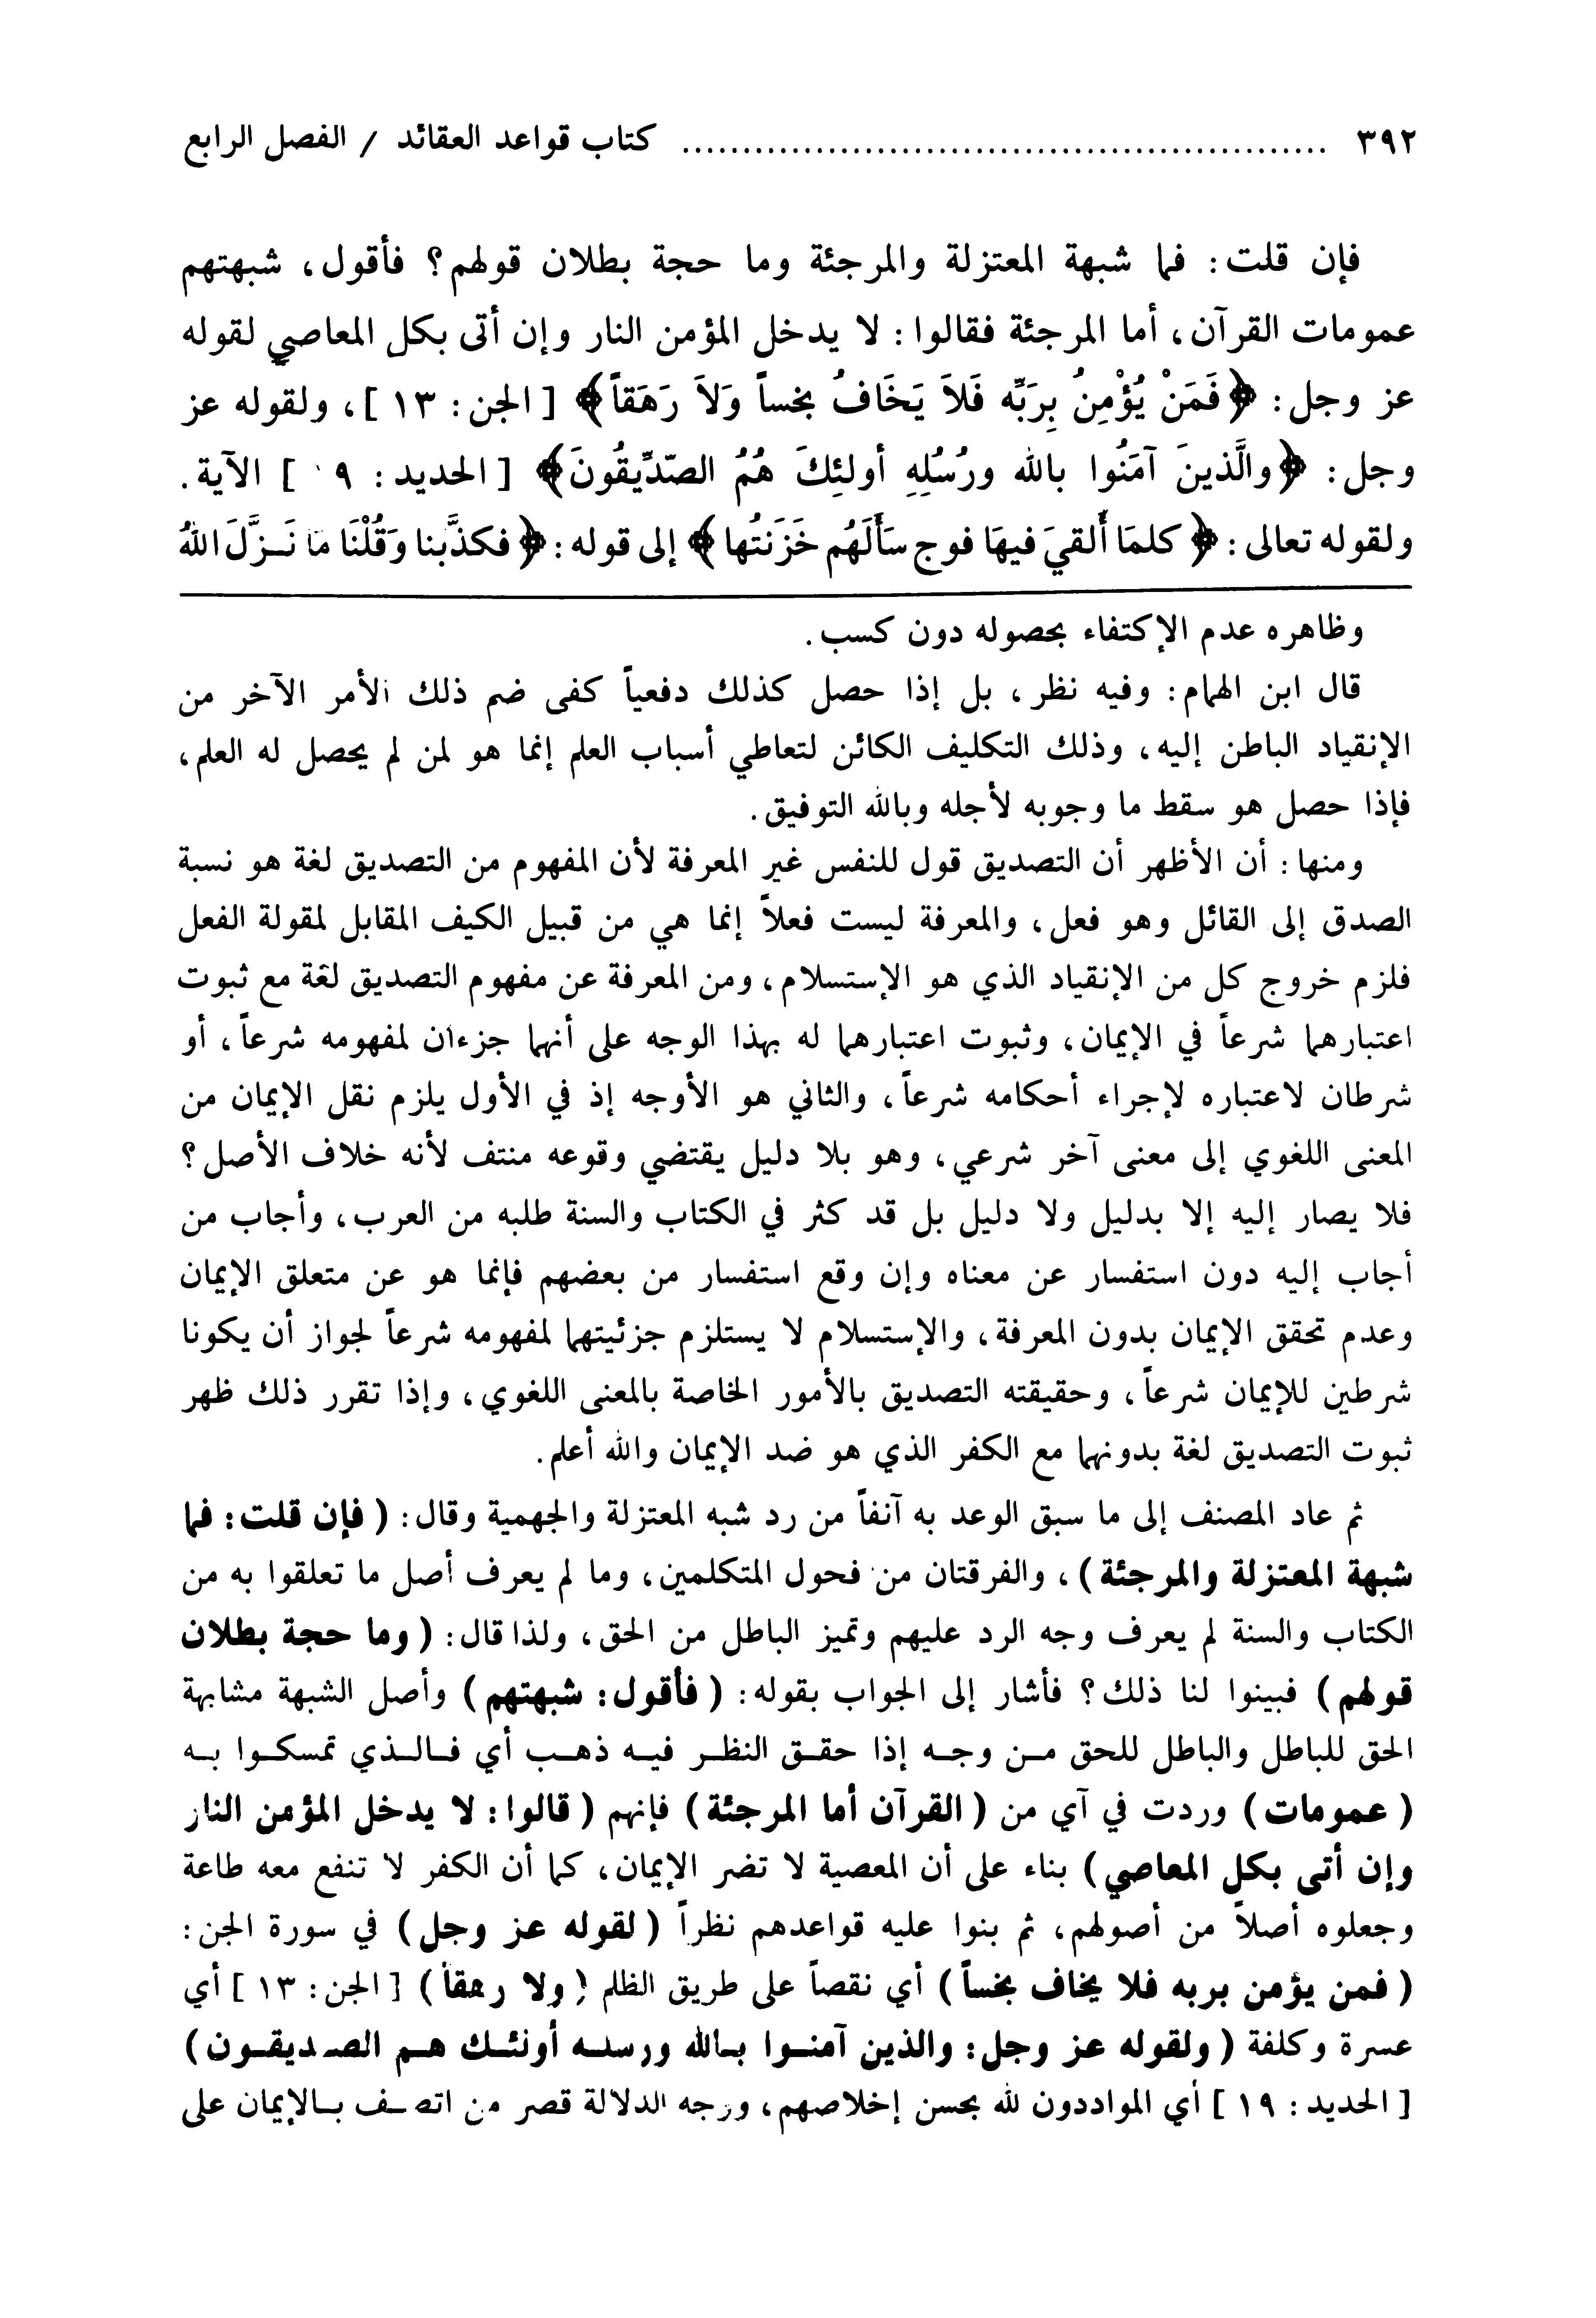 ٣٩٢ ........................................................ كتاب قواعد العقائد / الفصل الرابع
فإن قلت: فما شبهة المعتزلة والمرجئة وما حجة بطلان قولهم؟ فأقول، شبهتهم
عمومات القرآن، أما المرجئة فقالوا: لا يدخل المؤمن النار وإن أتى بكل المعاصي لقوله
عز وجل: ﴿فَمَنْ يُؤْمِنُ بِرَبِّه فَلاَ يَخَافُ بخساً وَلاَ رَهَقاً﴾ [الجن: ١٣]، ولقوله عز
وجل: ﴿والَّذينَ آمَنُوا بالله ورُسُلِهِ أولئِكَ هُمُ الصّدِّيقُونَ﴾ [الحديد: ٩] الآية.
ولقوله تعالى: ﴿كلمَا أُلقيَ فيهَا فوج سَأَلَهُم خَزَنتُها﴾ إلى قوله: ﴿فكذَّبنا وَقُلْنَا مَا نَـزَّلَ اللهُ
وظاهره عدم الإكتفاء بحصوله دون كسب.
قال ابن الهمام: وفيه نظر، بل إذا حصل كذلك دفعياً كفى ضم ذلك الأمر الآخر من
الإنقياد الباطن إليه، وذلك التكليف الكائن لتعاطي أسباب العلم إنما هو لمن لم يحصل له العلم،
فإذا حصل هو سقط ما وجوبه لأجله وبالله التوفيق.
ومنها: أن الأظهر أن التصديق قول للنفس غير المعرفة لأن المفهوم من التصديق لغة هو نسبة
الصدق إلى القائل وهو فعل، والمعرفة ليست فعلاً إنما هي من قبيل الكيف المقابل لمقولة الفعل
فلزم خروج كل من الإنقياد الذي هو الإستسلام، ومن المعرفة عن مفهوم التصديق لغة مع ثبوت
اعتبارهما شرعاً في الإيمان، وثبوت اعتبارهما له بهذا الوجه على أنهما جزءان لمفهومه شرعاً، أو
شرطان لاعتباره لإجراء أحكامه شرعاً، والثاني هو الأوجه إذ في الأول يلزم نقل الإيمان من
المعنى اللغوي إلى معنى آخر شرعي، وهو بلا دليل يقتضي وقوعه منتف لأنه خلاف الأصل؟
فلا يصار إليه إلا بدليل ولا دليل بل قد كثر في الكتاب والسنة طلبه من العرب، وأجاب من
أجاب إليه دون استفسار عن معناه وإن وقع استفسار من بعضهم فإنما هو عن متعلق الإيمان
وعدم تحقق الإيمان بدون المعرفة، والإستسلام لا يستلزم جزئيتهما لمفهومه شرعاً لجواز أن يكونا
شرطين للإيمان شرعاً، وحقيقته التصديق بالأمور الخاصة بالمعنى اللغوي، وإذا تقرر ذلك ظهر
ثبوت التصديق لغة بدونهما مع الكفر الذي هو ضد الإيمان والله أعلم.
ثم عاد المصنف إلى ما سبق الوعد به آنفاً من رد شبه المعتزلة والجهمية وقال: (فإن قلت: فما
شبهة المعتزلة والمرجئة)، والفرقتان من فحول المتكلمين، وما لم يعرف أصل ما تعلقوا به من
الكتاب والسنة لم يعرف وجه الرد عليهم وتميز الباطل من الحق، ولذا قال: (وما حجة بطلان
قولهم) فبينوا لنا ذلك؟ فأشار إلى الجواب بقوله: (فأقول: شبهتهم) وأصل الشبهة مشابهة
الحق للباطل والباطل للحق مـن وجـه إذا حقـق النظـر فيـه ذهـب أي فـالـذي تمسكـوا بـه
(عمومات) وردت في آي من (القرآن أما المرجئة) فإنهم (قالوا: لا يدخل المؤمن النار
وإن أتى بكل المعاصي) بناء على أن المعصية لا تضر الإيمان، كما أن الكفر لا تنفع معه طاعة
وجعلوه أصلاً من أصولهم، ثم بنوا عليه قواعدهم نظراً (لقوله عز وجل) في سورة الجن:
(فمن يؤمن بربه فلا يخاف بخساً) أي نقصاً على طريق الظلم (ولا رهقاً) [الجن: ١٣] أي
عسرة وكلفة (ولقوله عز وجل: والذين آمنـوا بـالله ورسلـه أولئـك هـم الصـديقـون)
[الحديد: ١٩] أي الموادون لله بحسن إخلاصهم، ووجه الدلالة قصر من اتصـف بـالإيمان على